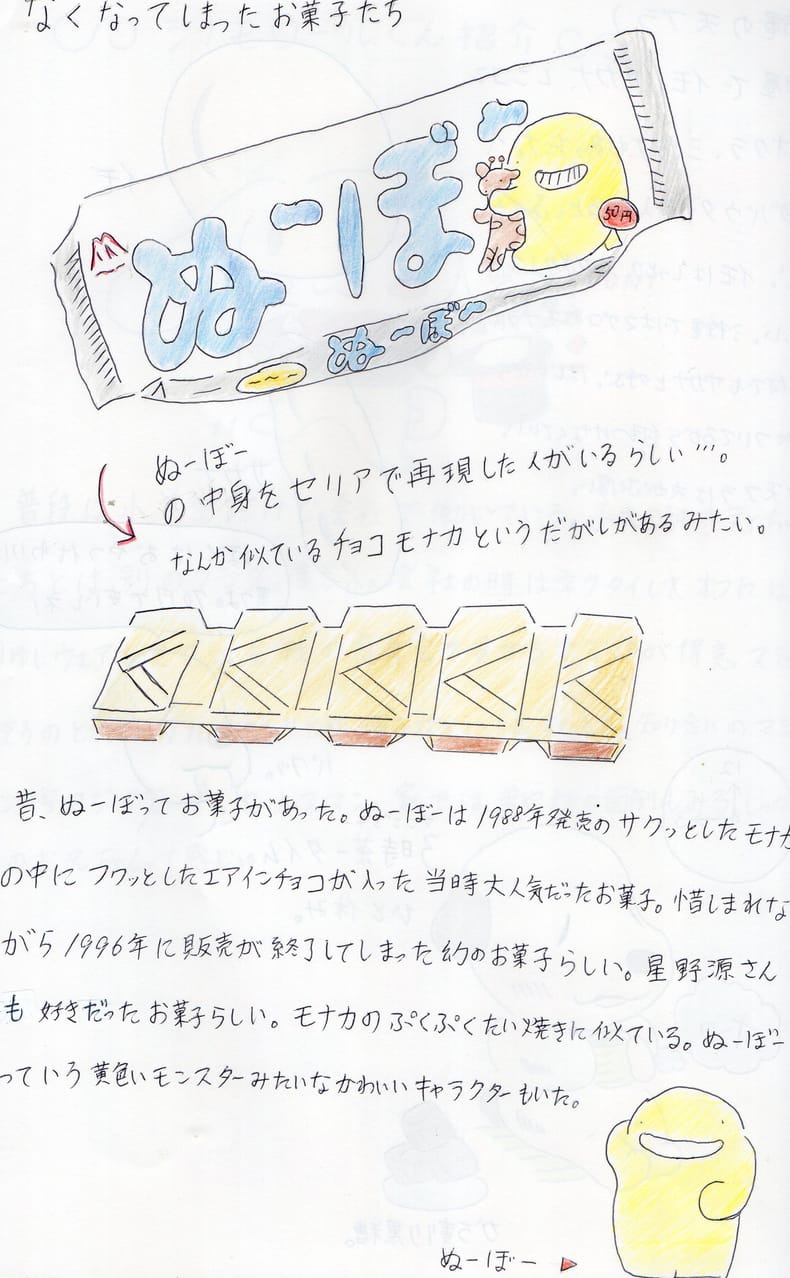 なくなってしまったお菓子たち
ぬーぼー
50円
ぬーぼー
ぬーぼー
の中身をセリアで再現した人がいるらしい…。
なんか似ているチョコモナカというだがしがあるみたい。
昔、ぬーぼってお菓子があった。ぬーぼーは1988年発売のサクッとしたモナカ
の中にフワッとしたエアインチョコが入った当時大人気だったお菓子。惜しまれな
がら1996年に販売が終了してしまった幻のお菓子らしい。星野源さん
も好きだったお菓子らしい。モナカのぷくぷくたい焼きに似ている。ぬーぼー
っていう黄色いモンスターみたいなかわいいキャラクターもいた。
ぬーぼー